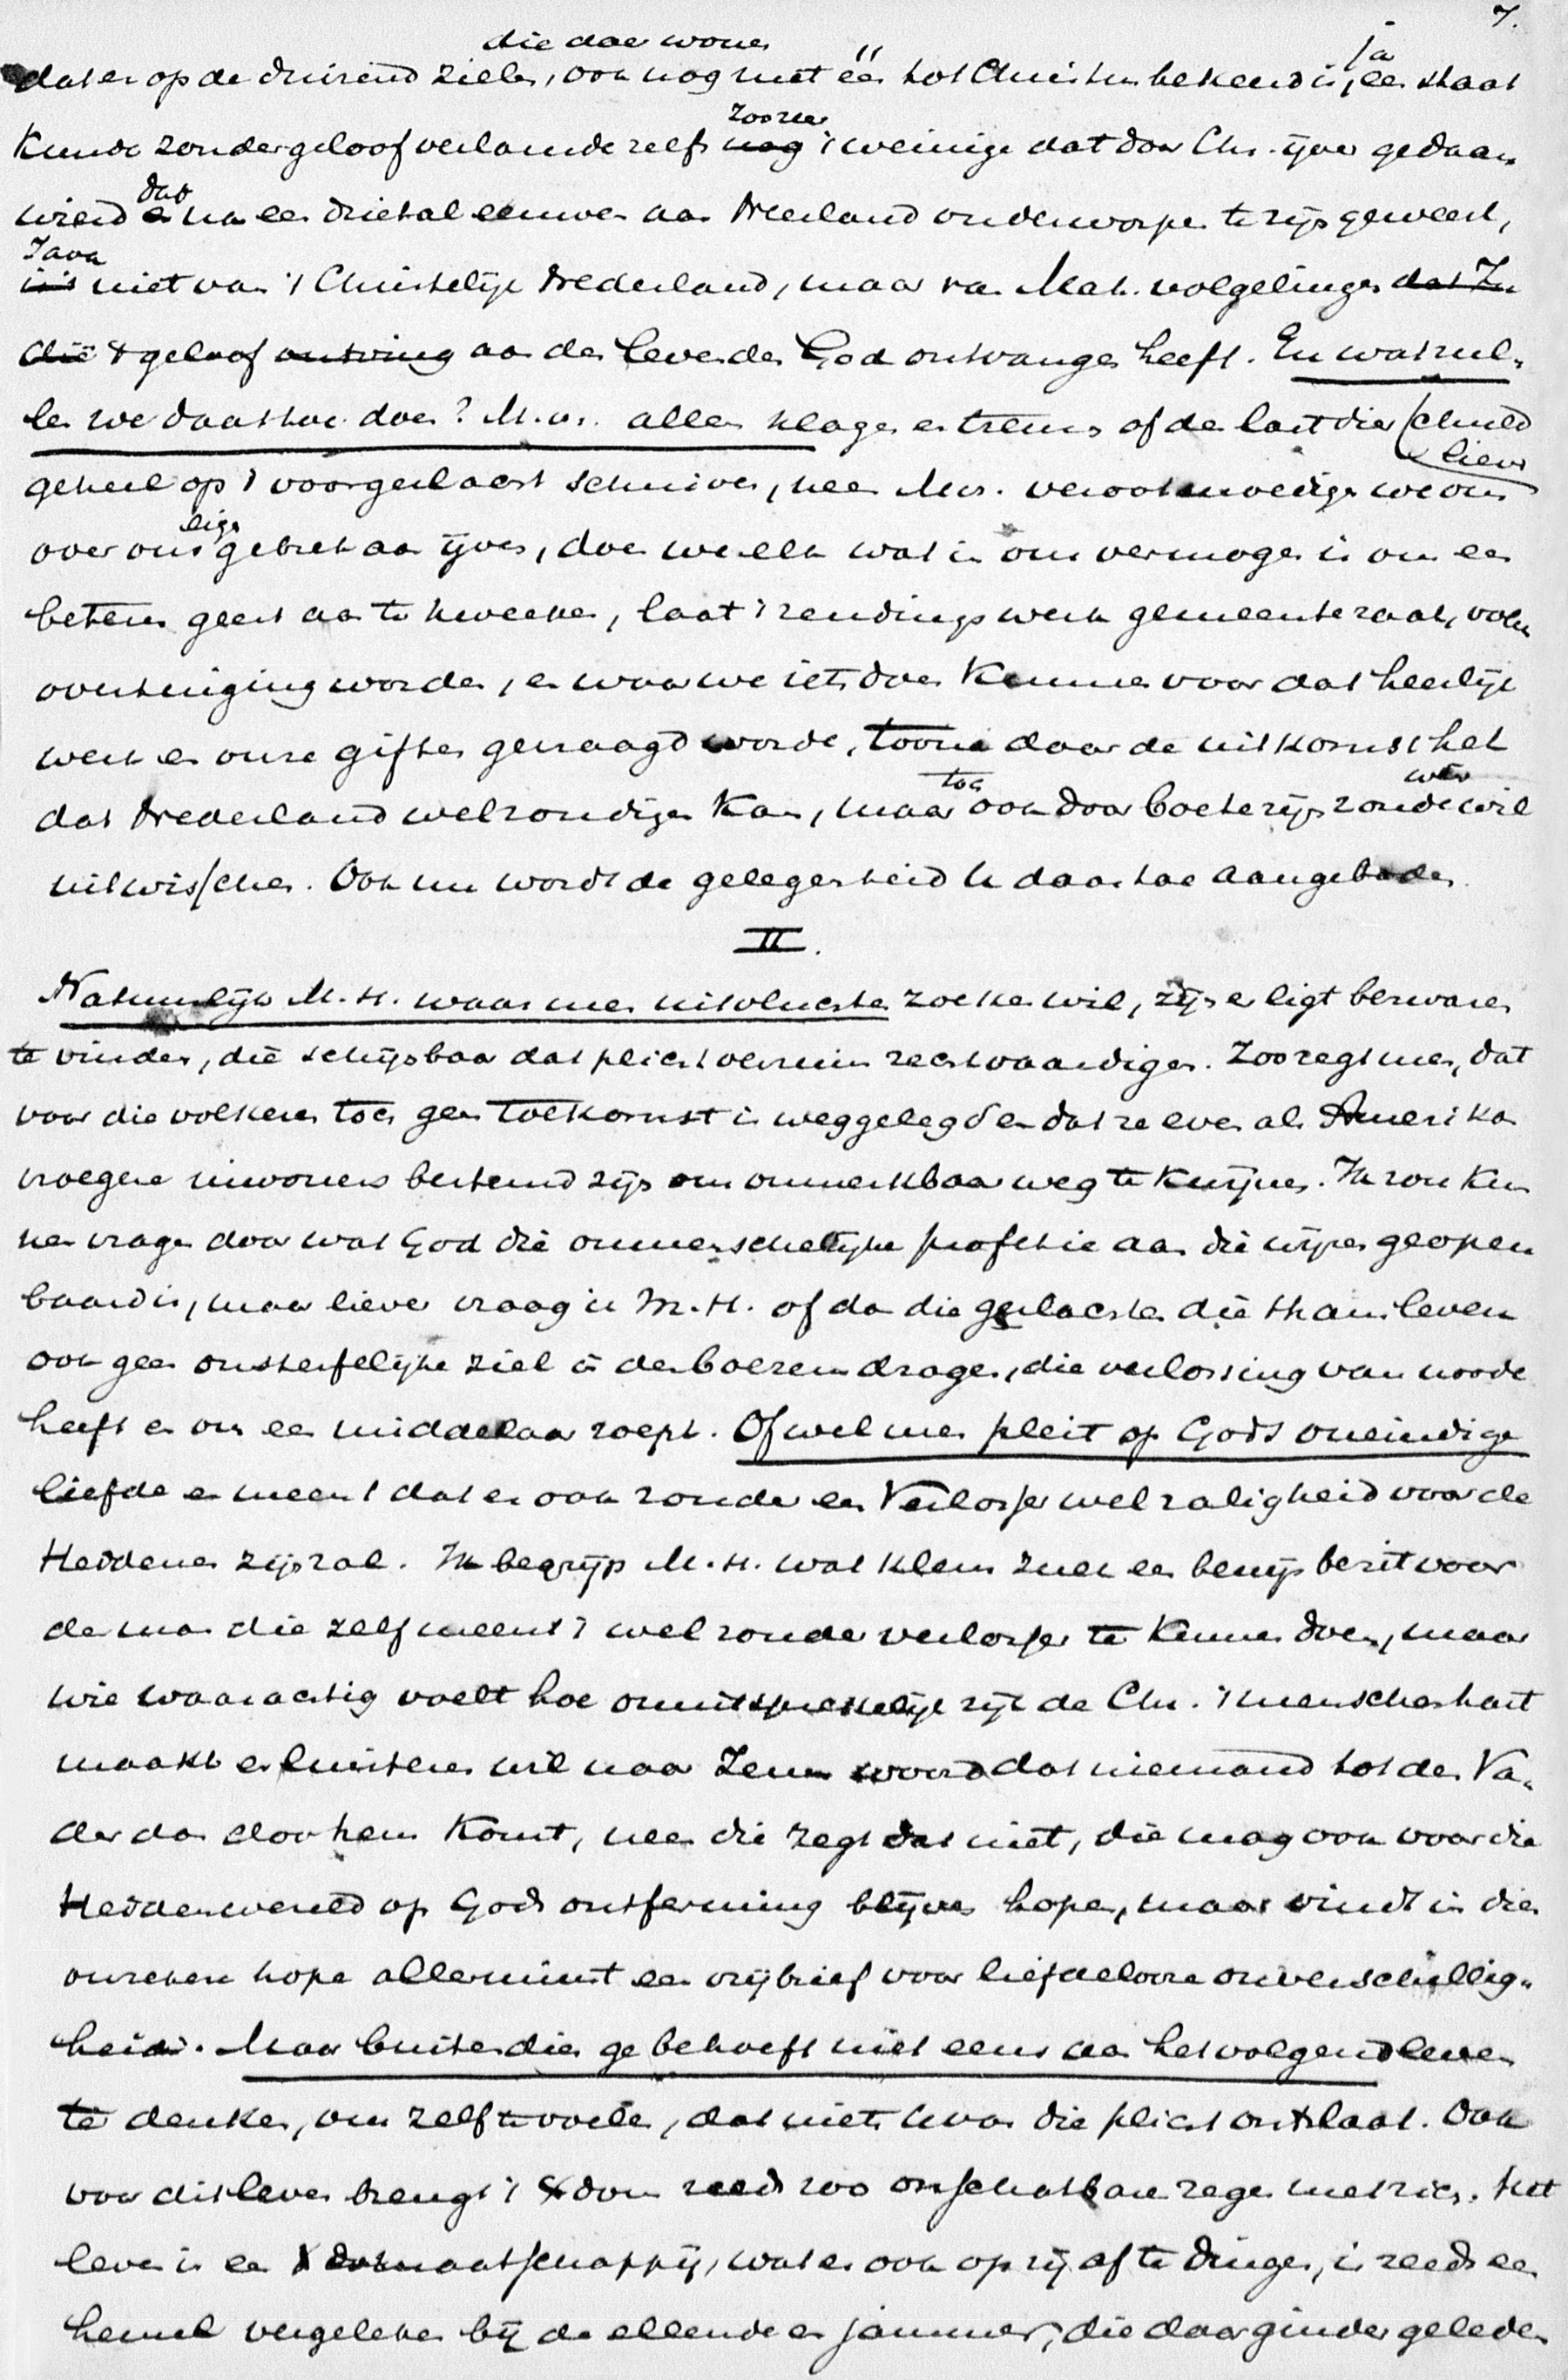 7.
die daar wonen
dat er op de duizend zielen, ook nog niet één tot Christen bekeerd is, ja een staat
kunde zonder geloof verlamde zelfs nog zoozeer 't weinige dat door Chr. ijver gedaan
wierd en dat na een drietal eeuwen aan Nederland onderworpen te zijn geweest,
Java is 't niet van 't Christelijk Nederland, maar van Mah. volgelingen dat In
dië 't geloof ontving aan den levenden God ontvangen heeft. En wat zul-
len we daartoe doen? M. v. alleen klagen en treuren of de last dier schuld
geheel op 't voorgeslacht schuiven, neen M. v. verootmoedigen we ons liever
over ons eigen gebrek aan ijver, doen we elk wat in ons vermogen is om een
beteren geest aan te kweeken, laat 't zendingswerk gemeentezaak, volks
overtuiging worden, en waar we iets doen kunnen voor dat heerlijk
werk en onze giften gevraagd worden, toone daar de uitkomst het
dat Nederland wel zondigen kan, maar toch ook door boete zijn zonde weer wil
uitwisschen. Ook nu wordt de gelegenheid U daartoe aangeboden.
II.
Natuurlijk M. H. waar men uitvluchten zoeken wil, zijn er ligt bezwaren
te vinden, die schijnbaar dat plichtverzuim rechtvaardigen. Zoo zegt men, dat
voor die volkeren toch geen toekomst is weggelegd en dat ze even als Amerika
vroegere inwoners bestemd zijn om onmerkbaar weg te kwijnen. Ik zou kun
nen vragen door wat God die onmenschelijke profetie aan die wijzen geopen
baard is, maar liever vraag ik M. H. of dan die geslachten die thans leven
ook geen onsterfelijke ziel in den boezem dragen, die verlossing van noode
heeft en om een middelaar roept. Of wel men pleit op Gods oneindige
liefde en meent dat er ook zonder een Verlosser wel zaligheid voor de
Heidenen zijn zal. Ik begrijp M. H. wat klem zulk een bewijs bezit voor
de man die zelf meent 't wel zonder verlosser te kunnen doen, maar
wie waarachtig voelt hoe onuitsprekelijk rijk de Chr. 't menschenhart
maakt en luisteren wil naar Jezus woord dat niemand tot den Va-
der dan door hem komt, neen die zegt dat niet, die mag ook voor die
Heidenwereld op Gods ontferming blijven hopen, maar vindt in die
onzekere hope allerminst een vrijbrief voor liefdelooze onverschillig-
heid. Maar buitendien ge behoeft niet eens aan het volgend leven
te denken, om zelf te voelen, dat niets U van die plicht ontslaat. Ook
voor dit leven brengt 't Xdom reeds zoo onschatbare zegen met zich. Het
leven in een Xdom maatschappij, wat er ook op zij af te dingen, is reeds een
hemel vergeleken bij de ellende en jammer, die daarginder geleden